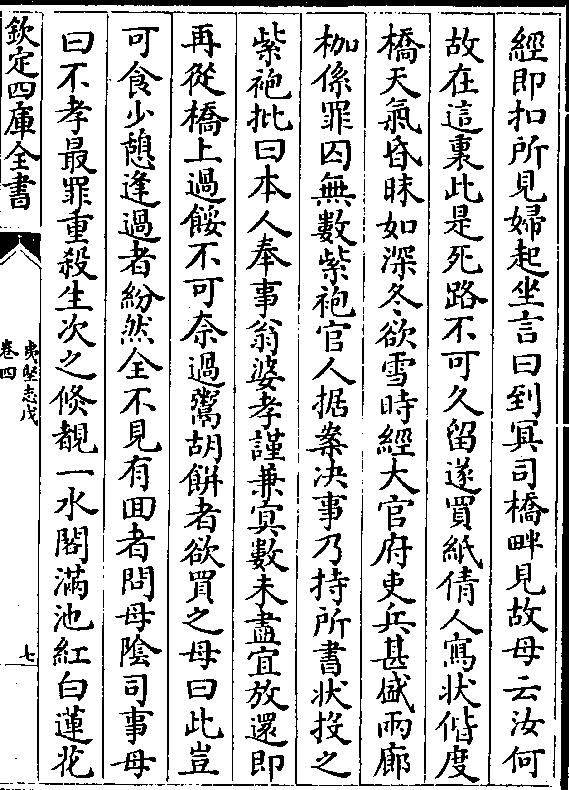 經即扣所見婦起坐言曰到冥司橋畔見故母云汝何
故在這裏此是死路不可久留遂買紙倩人寫狀偕度
橋天氣昏昧如深冬欲雪時經大官府吏兵甚盛兩廊
枷係罪囚無數紫袍官人据案決事乃持所書狀投之
紫袍批曰本人奉事翁婆孝謹兼冥數未盡宜放還即
再從橋上過餒不可奈過鬻胡餅者欲買之母曰此豈
可食少憩逢過者紛然全不見有回者問母陰司事母
曰不孝最罪重殺生次之倐覩一水閣滿池紅白蓮花
欽定四庫全書
夷堅志戊
卷四
七